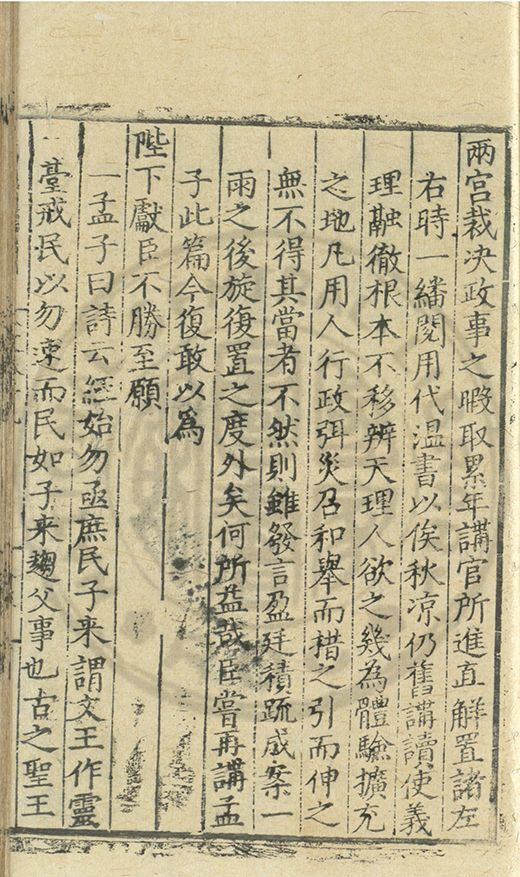 兩宫裁决政事之暇取累年講官所進直解置諸左
右時一繙閱用代温書以俟秋凉仍舊講讀使義
理融徹根本不移辨天理人欲之幾為體驗擴充
之地凡用人行政弭災召和舉而措之引而伸之
無不得其當者不然則雖發言盈廷積疏成案一
雨之後旋復置之度外矣何所益哉臣嘗再講孟
子此篇今復敢以為
陛下獻臣不勝至願
一孟子曰詩云經始勿亟庶民子来謂文王作靈
臺戒民以勿速而民如子来趨父事也古之聖王